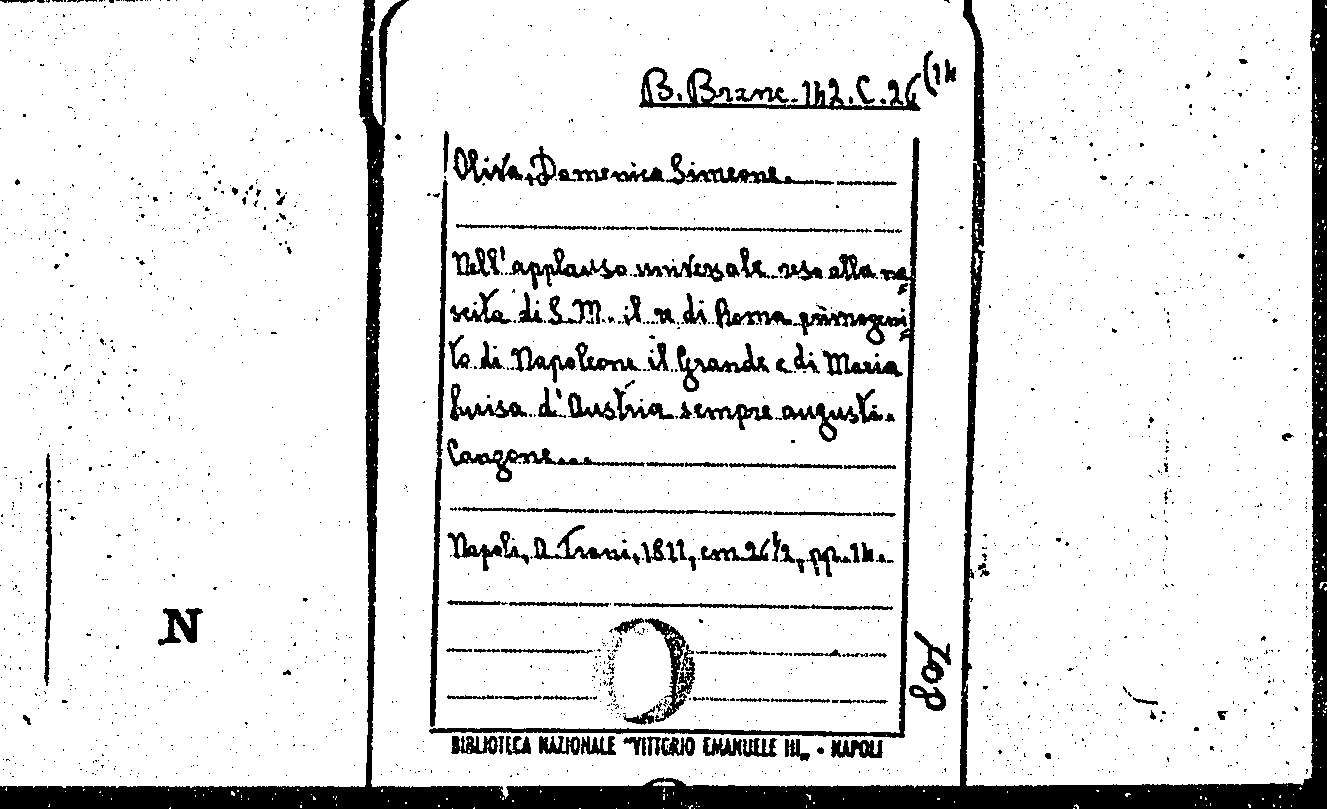 B. Branc. 142. C. 26 (14
Oliva, Domenica Simeone.
Nell' applauso universale reso alla na=
scita di S. M. il re di Roma primogeni=
to di Napoleone il Grande e di Maria
Luisa d'Austria sempre augusti.
Canzone...
Napoli, A. Trani, 1811, cm 26 1/2, pp. 14.
N
708
BIBLIOTECA NAZIONALE "VITTORIO EMANUELE III„ - NAPOLI